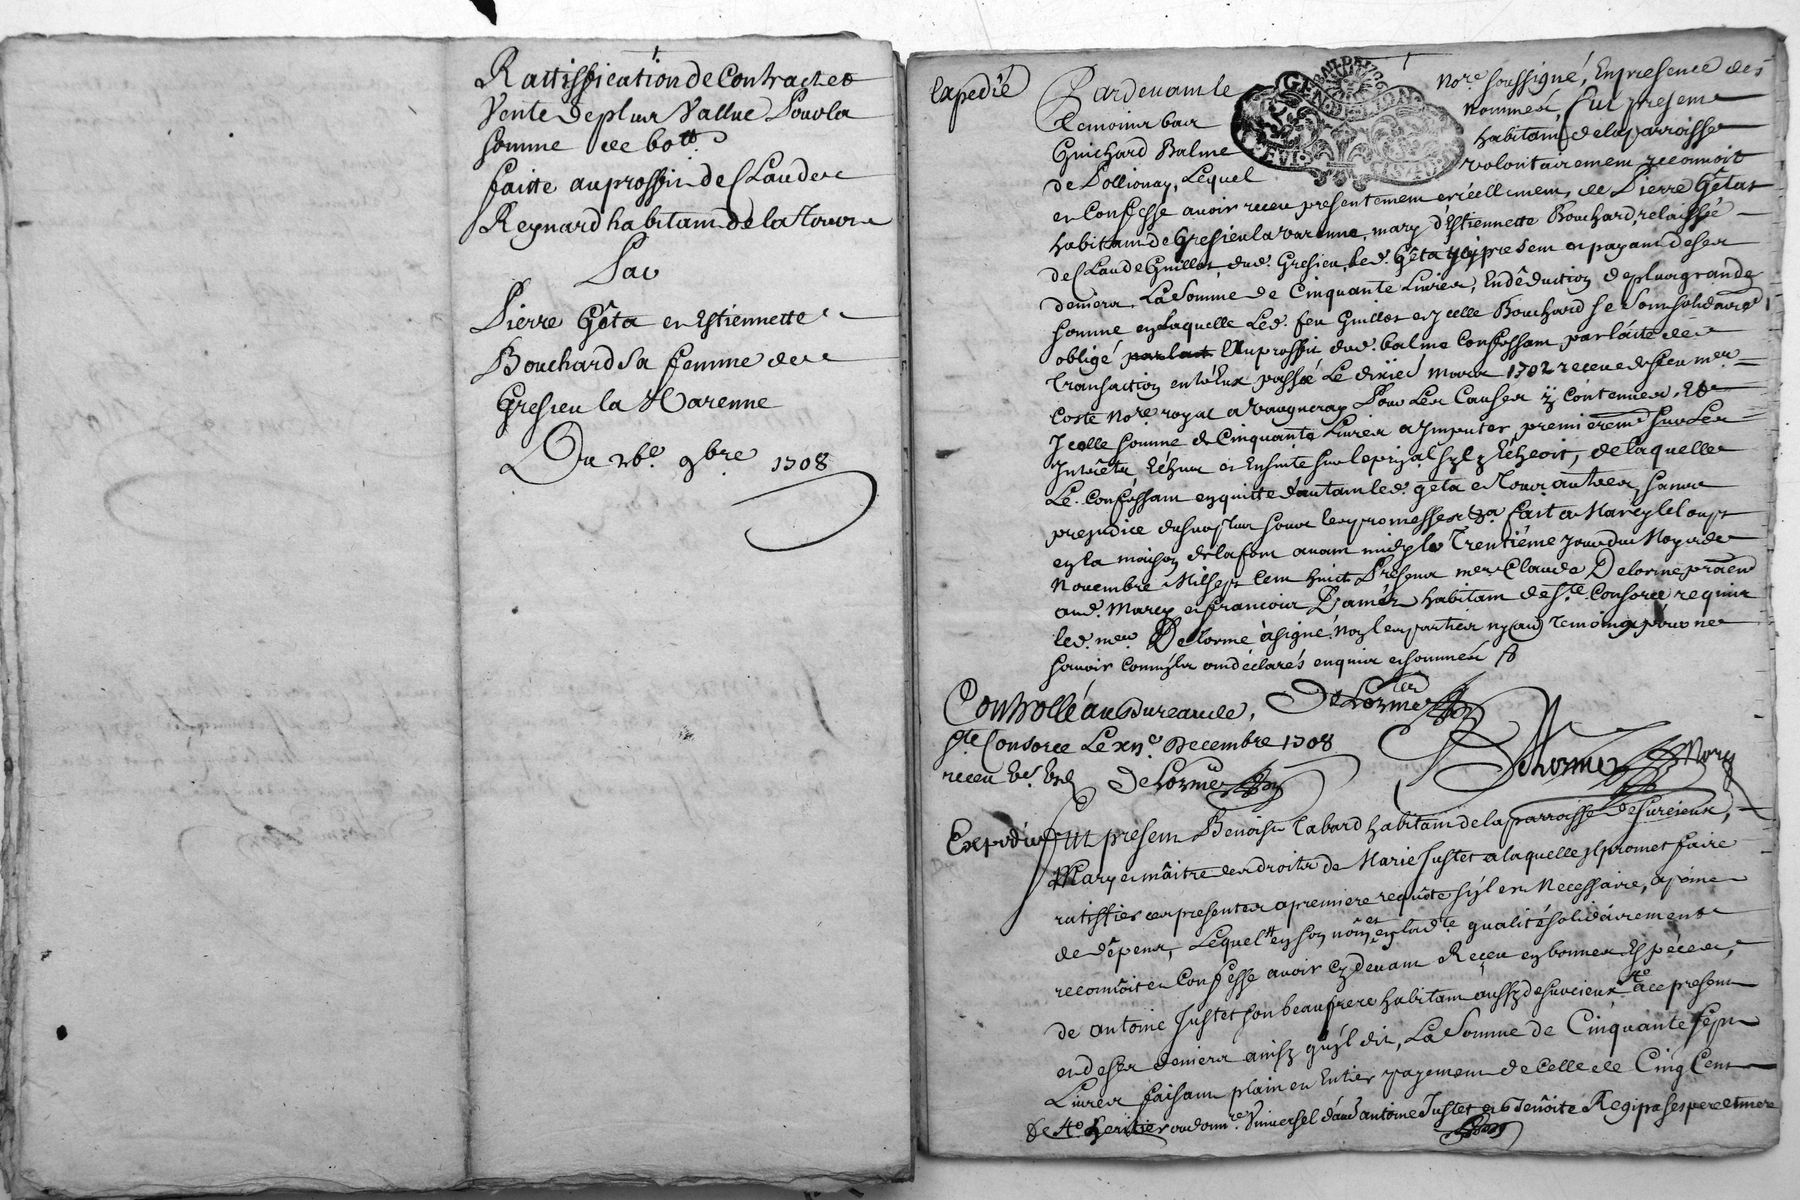 Rattiffication de Contract et
Vente de plus Vallue Pour la
somme de 60tt
faitte au proffit de Claude
Reynard habitant de la Tour
Par
Pierre Gêta et Estiennette
Bouchard sa femme de
Gresieu la Varenne
Du 26e 9bre 1708
Expedié
Pardevant le Nore soussigné, En presence des
temoins bas nommés, fut present
Guichard Balme habitant de la parroisse
de Pollionay, Lequel volontairement reconnoit
et Confesse avoir receu presentement et reellement, de Pierre Gêtas
habitant de Gresieu la varenne, mary d'Estiennette Bouchard, relaissée
de Claude Guillot dud. Gresieu, Led. Gêta icy present et payant de ses
deniers, La Somme de Cinquante Livres, En dêduction de plus grande
somme en laquelle Led. feu Guillot et ycelle Bouchard se sont solidairemt
obligé Au proffit dud. balme Confessant par l'acte de
Transaction entr'Eux passé Le dixie mars 1702 receu de feu mer
Coste Nore royal a vaugneray Pour Les Causes y contenues, Et
Icelle somme de Cinquante Livres a Imputer premieremt sur Les
Intêrêts Echus et Ensuite sur le pnpal s'yl y Echeoit, de laquelle
Le Confessant en quitte d'autant led. gêta et Tous autres, sans
prejudice du surplus sous les promesses &a fait a Marcy le Loup
en la maison de lafont avant midy le Trentième jour du Moys de
Novembre Mil sept Cent huict Presents mere Claude Delorme praticien
aud. Marcy et françois Damés habitant de Ste Consorce requis
led. mer Delorme à signé Non les parties ny aud temoing pour ne
sçavoir comm'yls ont déclarés enquis et sommés
Controllé au Bureau de Delorme
Ste Consorce Le xije Decembre 1708
receu Delorme Delorme Nore
Expedié Fut present Benoist Tabard habitant de la parroisse de Surcieux,
Mary et maître des droits de Marie Justet a laquelle yl promet faire
ratiffier ces presentes a premiere requête s'yl est Necessaire, a peine
de dêpens, Lequel en son nom et en lade qualité solidairement
reconnoit et Confesse avoir cy devant Reçeu en bonnes Espéces,
de antoine Justet son beaufrere habitant aussy de surcieux a ce present
et de ses deniers ainsy qu'yl dit, La Somme de Cinquante Sept
Livres faisant plain et Entier payement de Celle de Cinq Cent
heritier Universel d'aud antoine Justet et benôite Regipas ses pere et mere